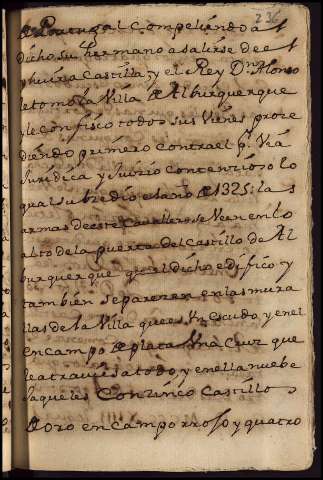 236
de Portugal compeliendo a
dicho su hermano a salirse de el
y huir a Castilla, y el Rey Dn. Alonso
le tomo la Villa de Alburquerque
y le confisco todos sus vienes proze
diendo primero contra el pr. Via
Juridica y Juizio contencioso lo
qual subzedio el año de 1325: las
armas de este Cavallero se veen en lo
alto de la puerta del Castillo de Al
burquerque qe. el dicho edifico y
tambien se parezen en las mura
llas de la Villa que es Un escudo, y en el
en campo de plata Una Cruz que
le atraviesa todo, y en ella nuebe
Jaqueles Con Zinco Castillos
de oro en campo rroso y quatro